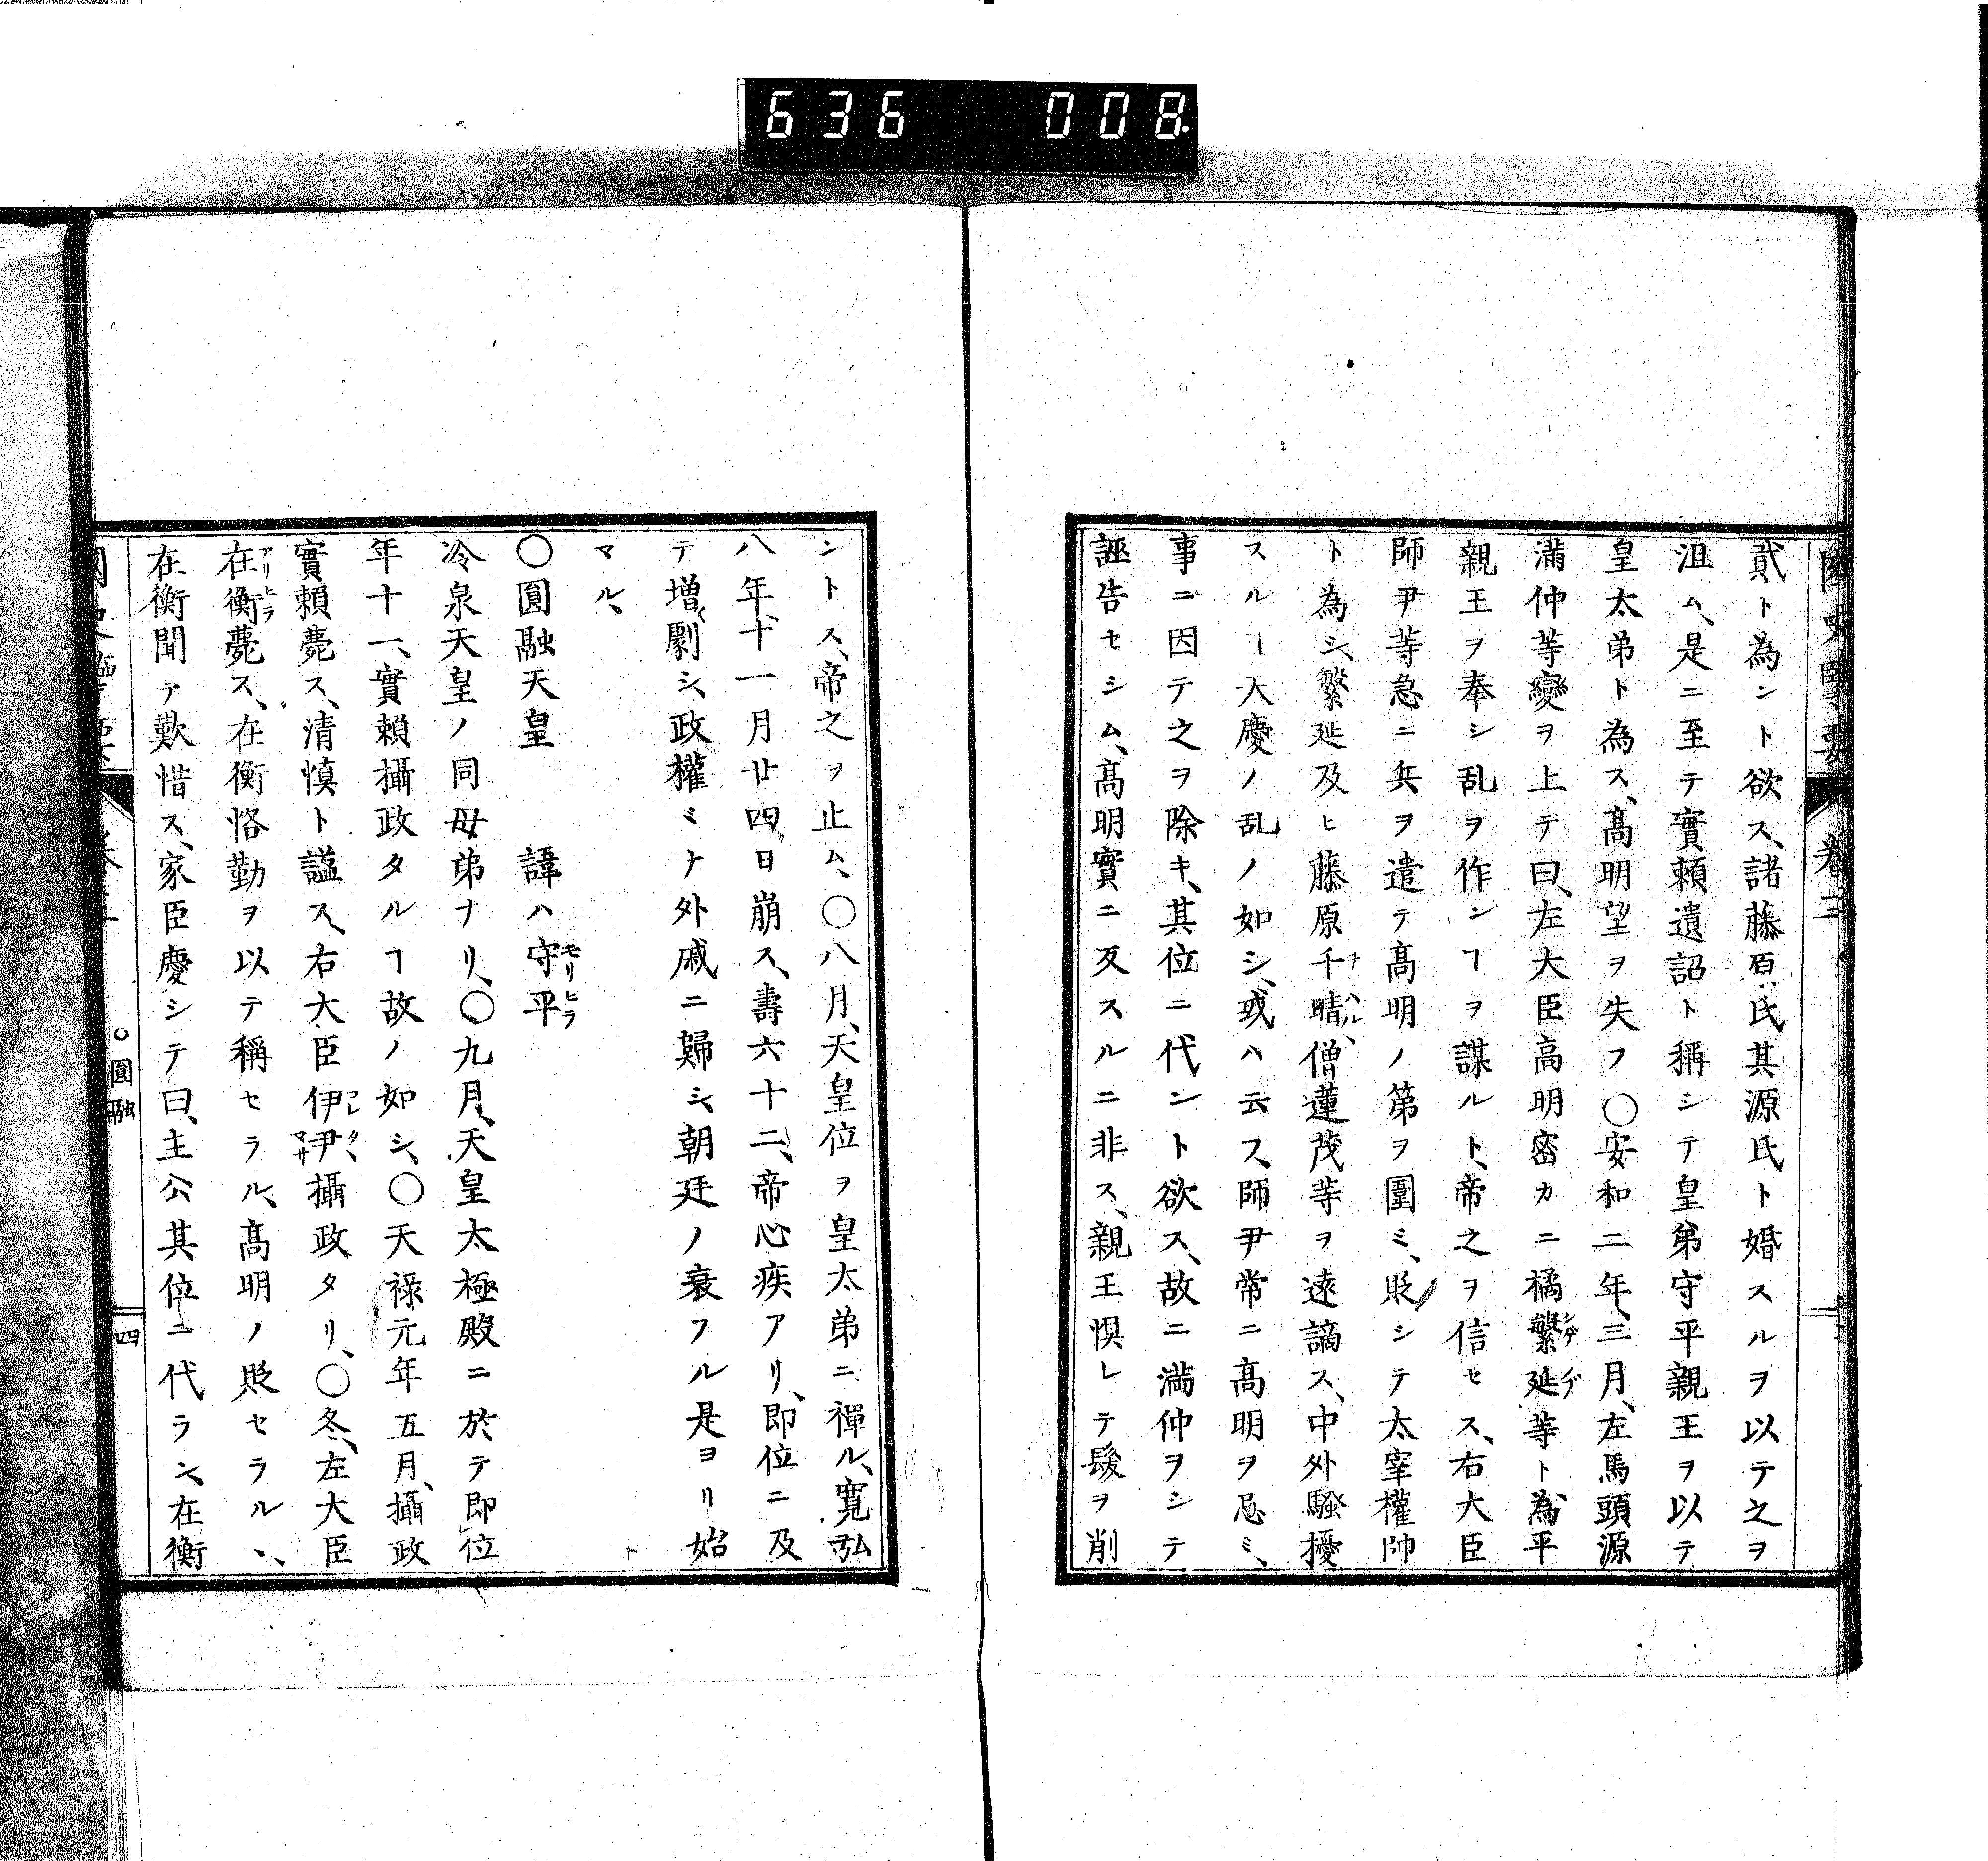 636 008
國史擥要 卷三
貳ト為ント欲ス、諸藤原氏其源氏ト婚スルヲ以テ之ヲ
沮ム、是ニ至テ實頼遺詔ト稱シテ皇弟守平親王ヲ以テ
皇太弟ト為ス、髙明望ヲ失フ〇安和二年、三月、左馬頭源
滿仲等變ヲ上テ曰、左大臣高明密カニ橘繁延等ト為平
親王ヲ奉シ乱ヲ作ンヿヲ謀ルト、帝之ヲ信セス、右大臣
師尹等急ニ兵ヲ遣テ髙明ノ第ヲ圍ミ、貶シテ太宰權帥
ト為シ、繁延及ヒ藤原千晴、僧蓮茂等ヲ遠謫ス、中外騷擾
スルヿ天慶ノ乱ノ如シ、或ハ云フ、師尹常ニ髙明ヲ忌ミ、
事ニ因テ之ヲ除キ、其位ニ代ント欲ス、故ニ満仲ヲシテ
誣告セシム、髙明實ニ反スルニ非ス、親王惧レテ髮ヲ削
ントス、帝之ヲ止ム、〇八月、天皇位ヲ皇太弟ニ禪ル、寛弘
八年、十一月廿四日崩ス、壽六十二、帝心疾アリ、即位ニ及
テ増劇シ、政權ミナ外戚ニ歸シ、朝廷ノ衰フル是ヨリ始
マル、
〇圓融天皇 諱ハ守平
モリヒラ
冷泉天皇ノ同母弟ナリ、〇九月、天皇太極殿ニ於テ即位
年十一、實頼攝政タルヿ故ノ如シ、〇天禄元年五月、攝政
實頼薨ス、清慎ト謚ス、右大臣伊尹攝政タリ、〇冬、左大臣
在衡薨ス、在衡恪勤ヲ以テ稱セラル、髙明ノ貶セラル、、
アリヒラ
在衡聞テ歎惜ス、家臣慶シテ曰、主公其位ニ代ラン、在衡
〇圓融 四